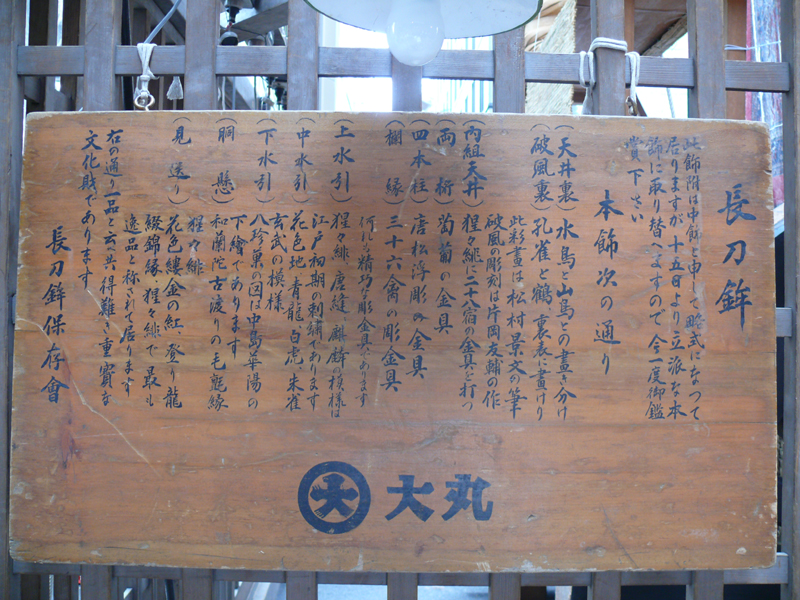 長刀鉾
此飾附は中飾と申して略式になつて
居りますが十五日より立派な本
飾に取り替へますので今一度御鑑
賞下さい
本飾次の通り
(天井裏) 水鳥と山鳥との畫き分け
(破風裏) 孔雀と鶴、裏表に畫けり
此彩畫は松村景文の筆
破風の彫刻は片岡友輔の作
(内組天井) 猩々緋に二十八宿の金具を打つ
(両桁) 葡萄の金具
(四本柱) 唐松浮彫の金具
(欄縁) 三十六禽の彫金具
何れも精巧の彫金具であります
(上水引) 猩々緋、唐縫、麒麟の模様は
江戸初期の刺繍であります
(中水引) 花色地、青龍、白虎、朱雀
玄武の模様
(下水引) 八珍菓の図は中島華陽の
下繪であります
(胴懸) 和蘭陀古渡りの毛氈縁
猩々緋
(見送り) 花色縷金の紅、登り龍
綴錦縁、猩々緋で最も
逸品と称されて居ります
右の通り一品と云共得難き重寶な
文化財であります
長刀鉾保存會
大 大丸